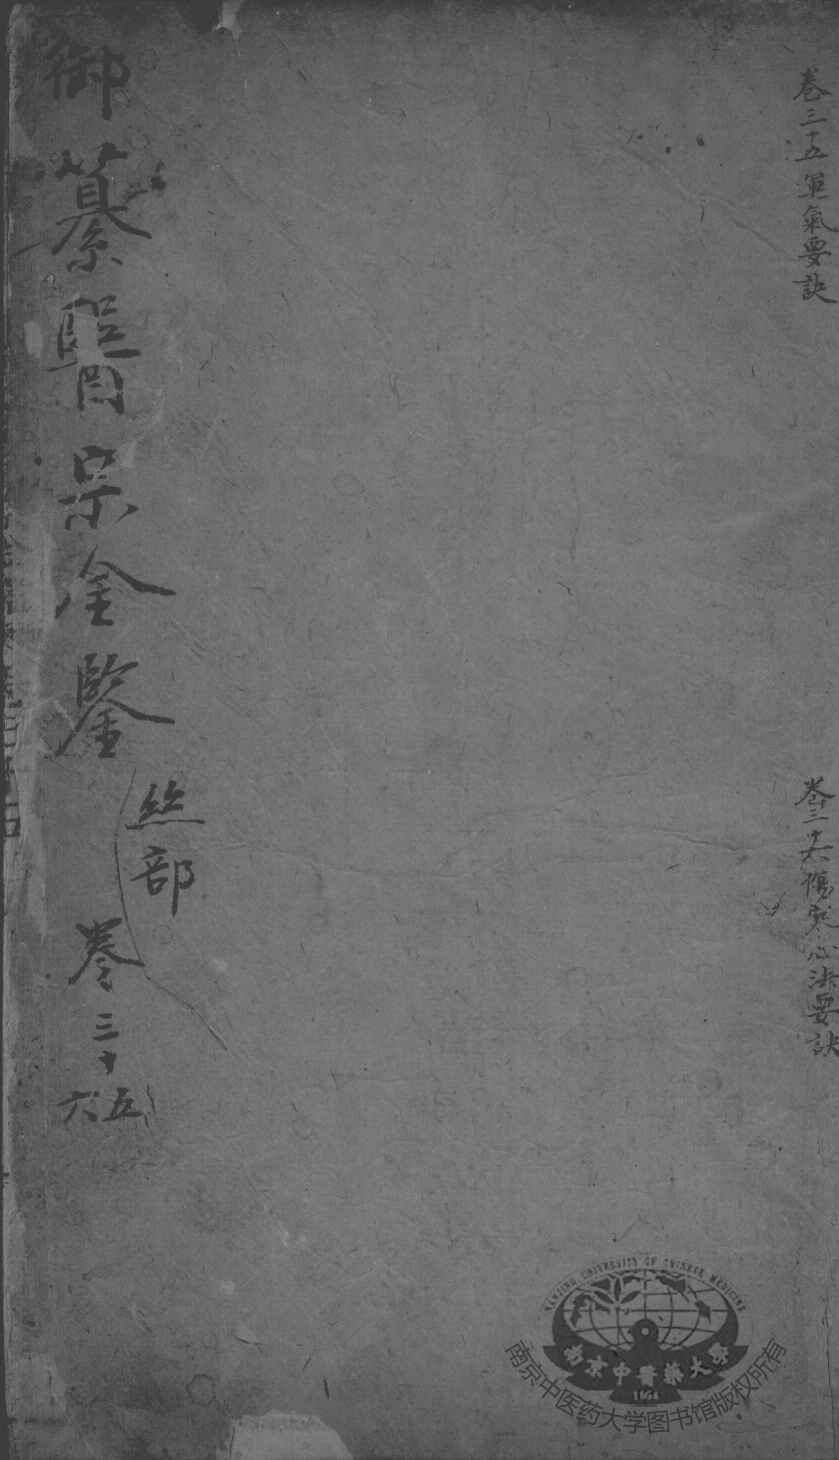 卷三十五運氣要訣
卷三十六傷寒心法要訣
御纂醫宗金鑒
絲部
卷三十五六
NANJING UNIVERSITY OF CHINESE MEDICINE
南京中醫藥大學
1954
南京中医药大学图书馆版权所有